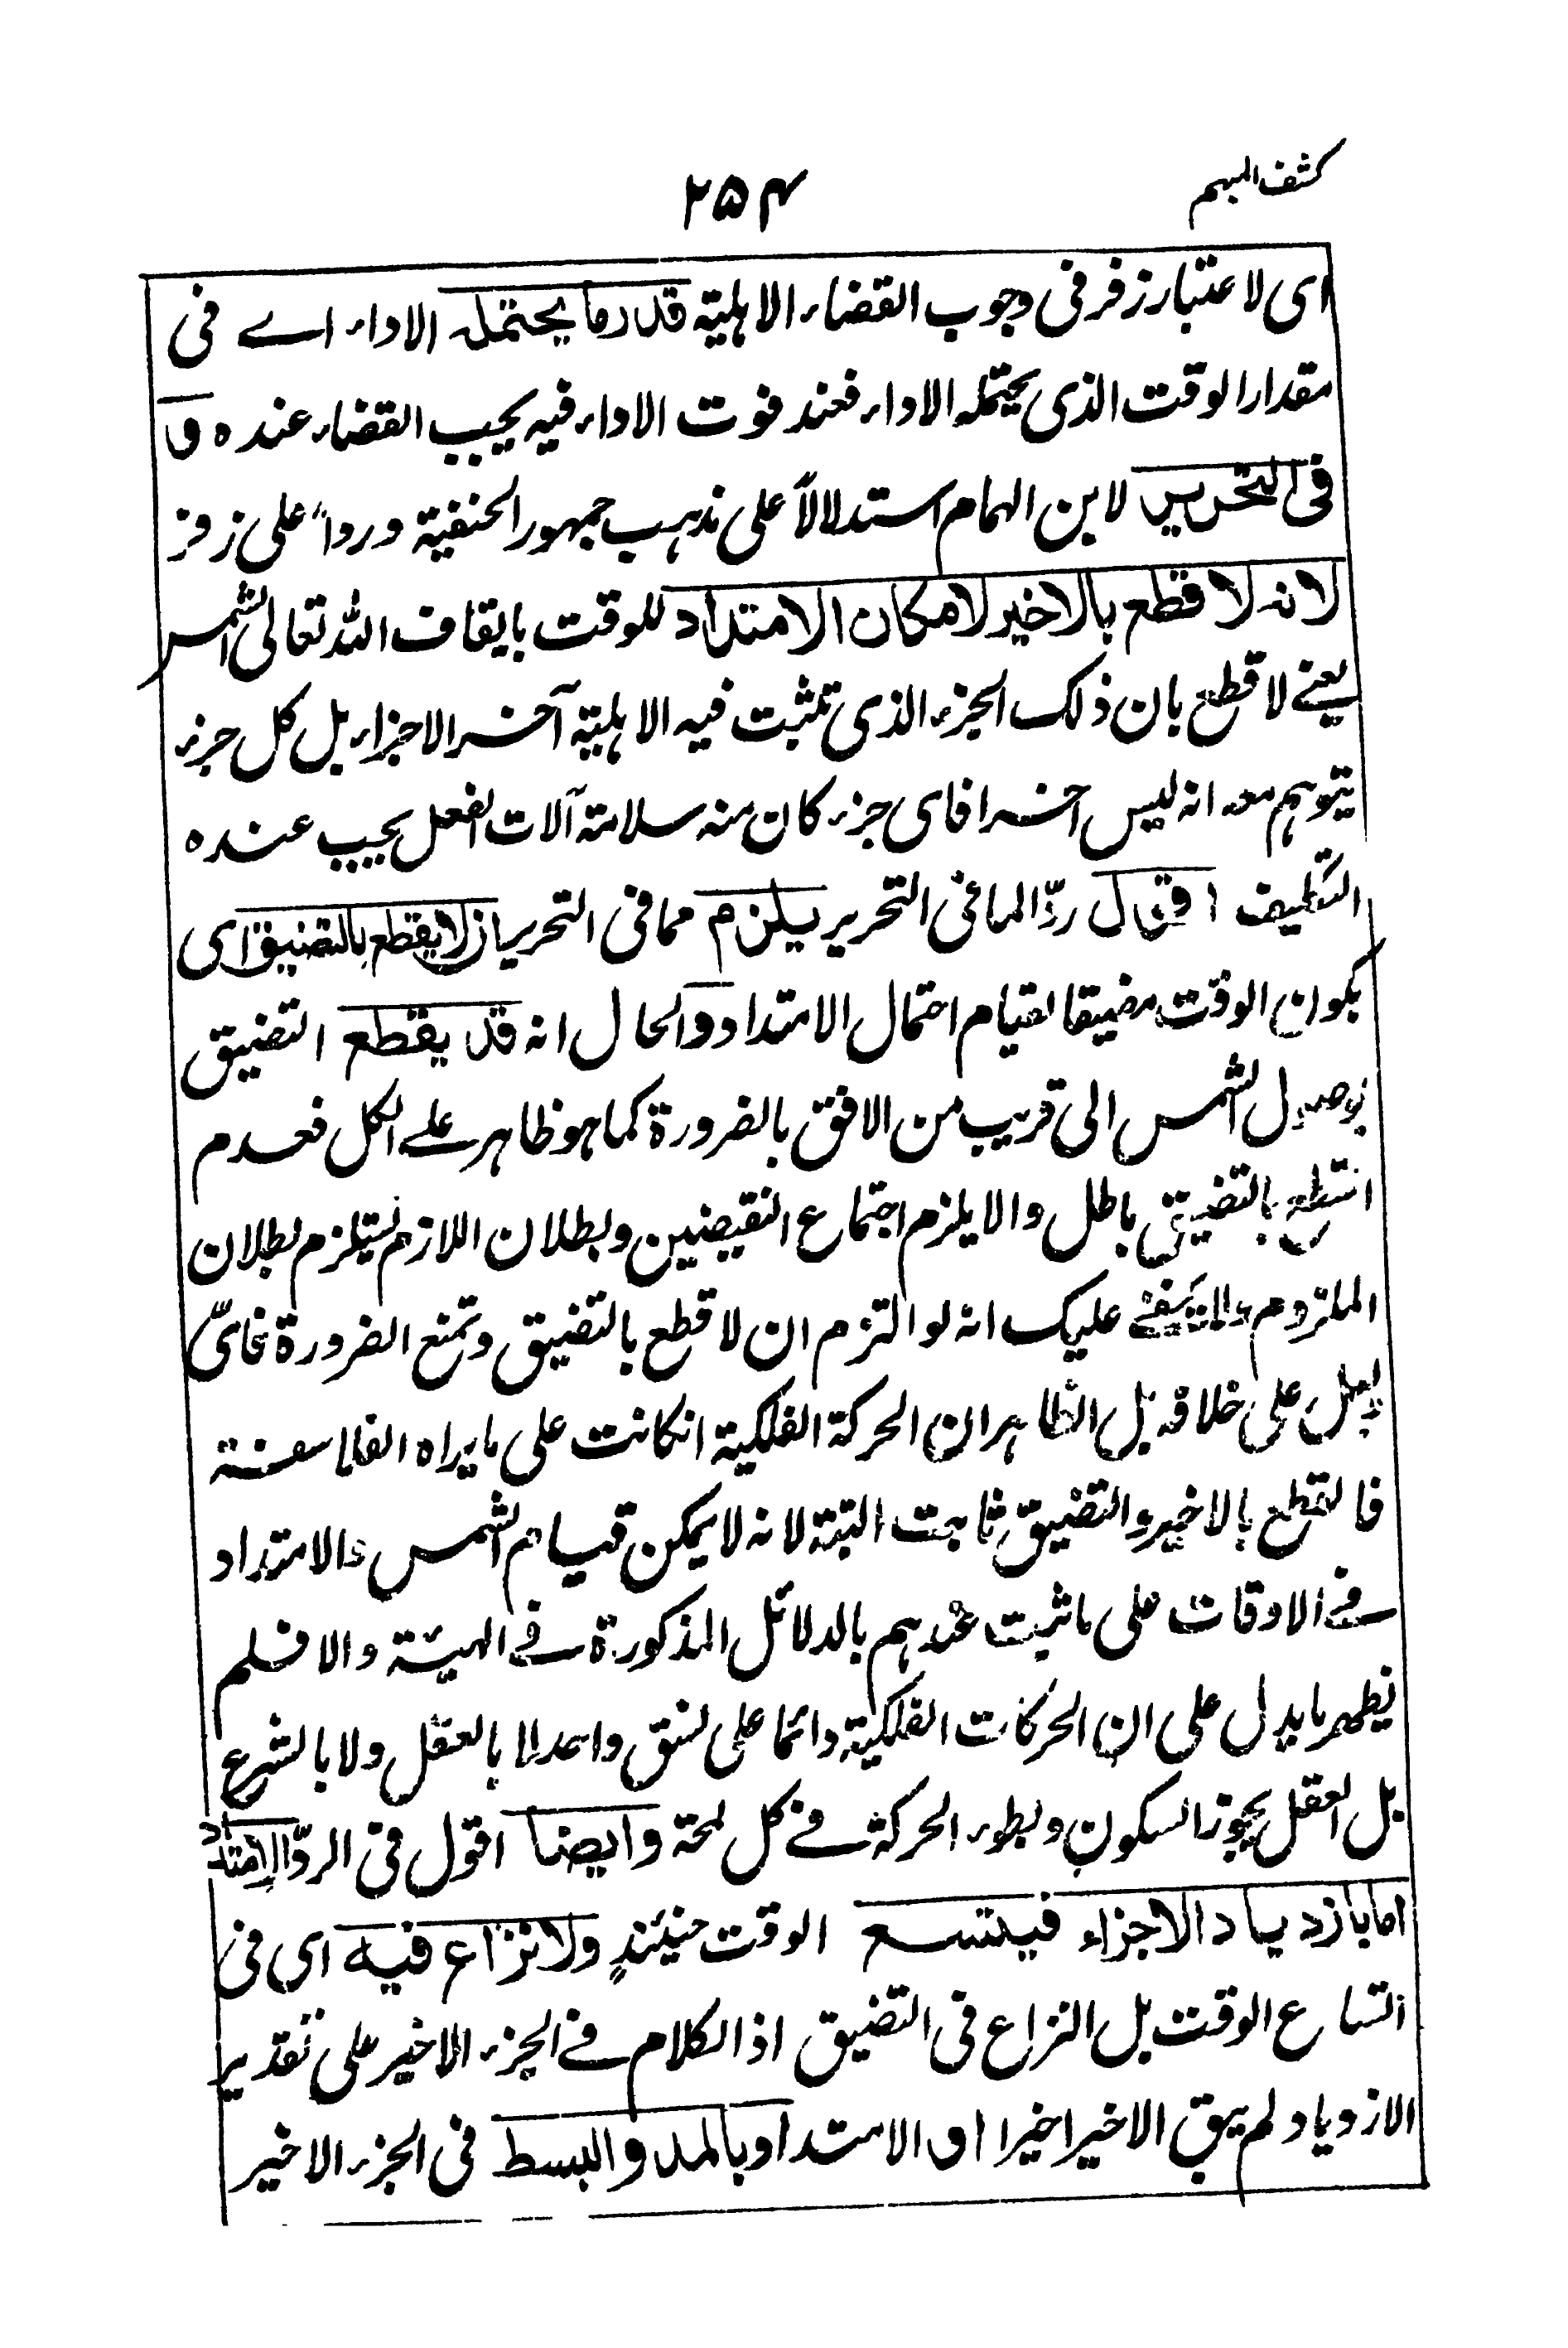 كشف المبهم
٢٥٤
اى لا عتبار زفر فى وجوب القضاء الاهلية قدر ما يحتمله الاداء اے فى
مقدار الوقت الذى يحتمله الاداء فعند فوت الاداء فيه يجب القضاء عنده و
فى التحرير لابن الهمام استدلالاً على مذهب جمهور الحنفية ورداً على زفر
لانه لا قطع بالاخير لامكان الامتداد للوقت بايقاف الله تعالى الشمس
يعنے لا قطع بان ذلك الجزء الذى تثبت فيه الاهلية آخر الاجزاء بل كل جزء
يتوهم معه انه ليس اخرا فاى جزء كان منه سلامة آلات الفعل يجب عنده
التكليف اقول ردّ الما فى التحرير يلزم مما فى التحرير ان لا يقطع بالتضيق اى
بكون الوقت مضيقا لقيام احتمال الامتداد والحال انه قد يقطع التضيق
بوصول الشمس الى قريب من الافق بالضرورة كما هو ظاهر علے الكل فعدم
القطع بالتضيق باطل والا يلزم اجتماع النقيضين وبطلان اللازم يستلزم بطلان
الملزوم عليك انه لو التزم ان لا قطع بالتضيق وتمنع الضرورة فاىّ
على خلافه بل الظاهر ان الحركة الفلكية انكانت على ما يراه الفلاسفة
فالقطع بالاخير والتضيق ثابت البتة لانه لا يمكن قيام الشمس والامتداد
فے الاوقات على ما ثبت عندهم بالدلائل المذكورة فے الهيئة والا فلم
يظهر ما يدل على ان الحركات الفلكية دائما على نسق واحد لا بالعقل ولا بالشرع
بل العقل يجوز السكون وبطوء الحركة فے كل لمحة وايضا اقول فى الردّ الامتداد
اما بازدياد الاجزاء فيتسع الوقت حينئذٍ ولا نزاع فيه اى فى
اتساع الوقت بل النزاع فى التضيق اذ الكلام فے الجزء الاخير على تقدير
الازدياد لم يبق الاخير اخيرا او الامتداد بالمد والبسط فى الجزء الاخير